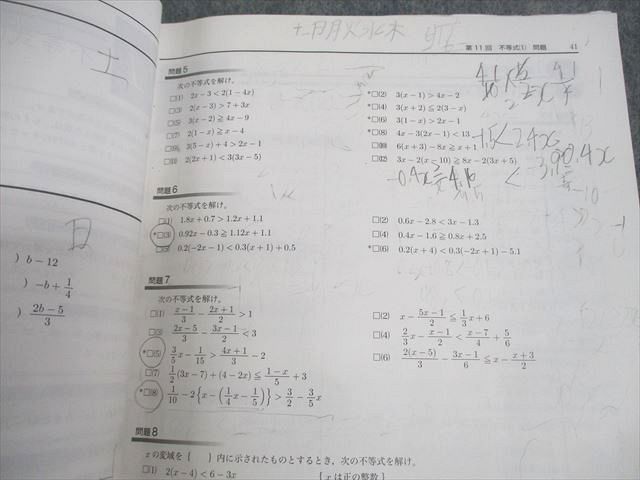 土日月火水木
第11回 不等式(1) 問題 41
土
日
) b−12
) −b+1/4
) (2b−5)/3
問題5
次の不等式を解け。
□(1) 2x−3<2(1−4x)
*□(2) 3(x−1)>4x−2
□(3) 2(x−3)>7+3x
*□(4) 3(x+2)≦2(3−x)
□(5) 3(x−2)≧4x−9
*□(6) 3(1−x)>2x−1
□(7) 2(1−x)≧x−4
*□(8) 4x−3(2x−1)<13
□(9) 3(5−x)+4>2x−1
□(10) 6(x+3)−8x≧x+1
□(11) 2(2x+1)<3(3x−5)
□(12) 3x−2(x−10)≧8x−2(3x+5)
問題6
次の不等式を解け。
□(1) 1.8x+0.7>1.2x+1.1
□(2) 0.6x−2.8<3x−1.3
*□(3) 0.92x−0.3≧1.12x+1.1
□(4) 0.4x−1.6≧0.8x+2.5
□(5) 0.2(−2x−1)<0.3(x+1)+0.5
*□(6) 0.2(x+4)<0.3(−2x+1)−5.1
問題7
次の不等式を解け。
□(1) (x−1)/3−(2x+1)/2>1
□(2) x−(5x−1)/2≦1/3x+6
□(3) (2x−5)/3−(3x−1)/2<3
□(4) 2/3x−(x−1)/2<(x−7)/4+5/6
*□(5) 3/5x−1/15>(4x+1)/3−2
□(6) 2(x−5)/3−(3x−1)/6≦x−(x+3)/2
□(7) 1/2(3x−7)+(4−2x)≦(1−x)/5+3
*□(8) 1/10−2{x−(1/4x−1/5)}>3/2−3/5x
問題8
xの変域を{ }内に示されたものとするとき，次の不等式を解け。
□(1) 2(x−4)<6−3x {xは正の整数}